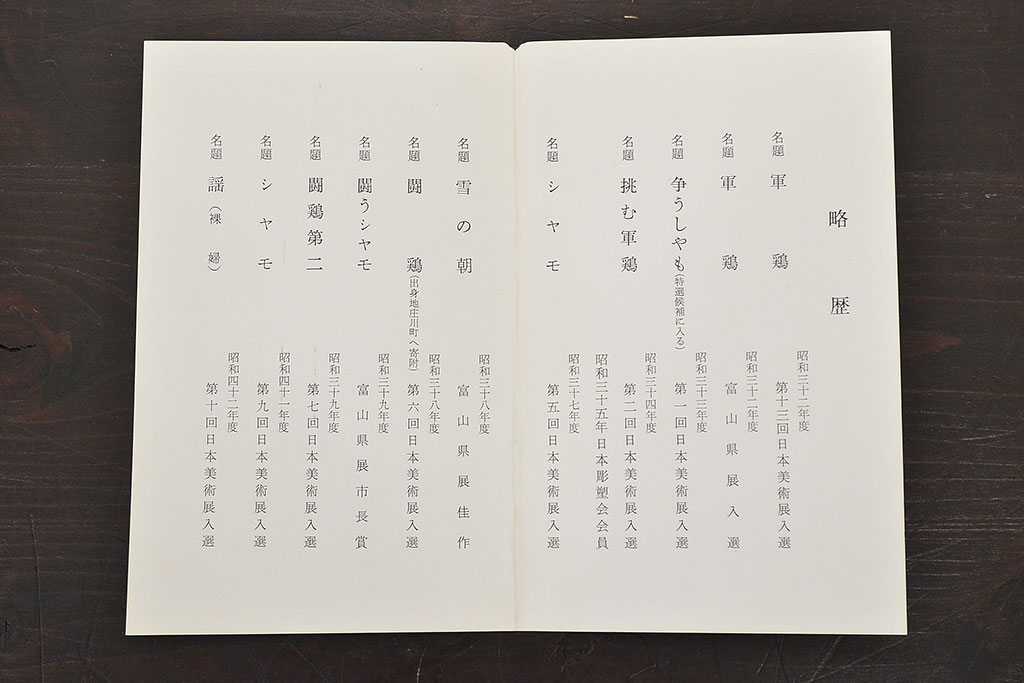 略歴
名題 軍鶏
昭和三十二年度
第十三回日本美術展入選
名題 軍鶏
昭和三十二年度
富山県展入選
名題 争うしやも(特選候補に入る)
昭和三十三年度
第一回日本美術展入選
名題 挑む軍鶏
昭和三十四年度
第二回日本美術展入選
昭和三十五年日本彫塑会会員
名題 シヤモ
昭和三十七年度
第五回日本美術展入選
名題 雪の朝
昭和三十八年度
富山県展佳作
名題 闘鶏(出身地庄川町へ寄附)
昭和三十八年度
第六回日本美術展入選
名題 闘うシヤモ
昭和三十九年度
富山県展市長賞
名題 闘鶏第二
昭和三十九年度
第七回日本美術展入選
名題 シヤモ
昭和四十一年度
第九回日本美術展入選
名題 謡(裸婦)
昭和四十二年度
第十回日本美術展入選